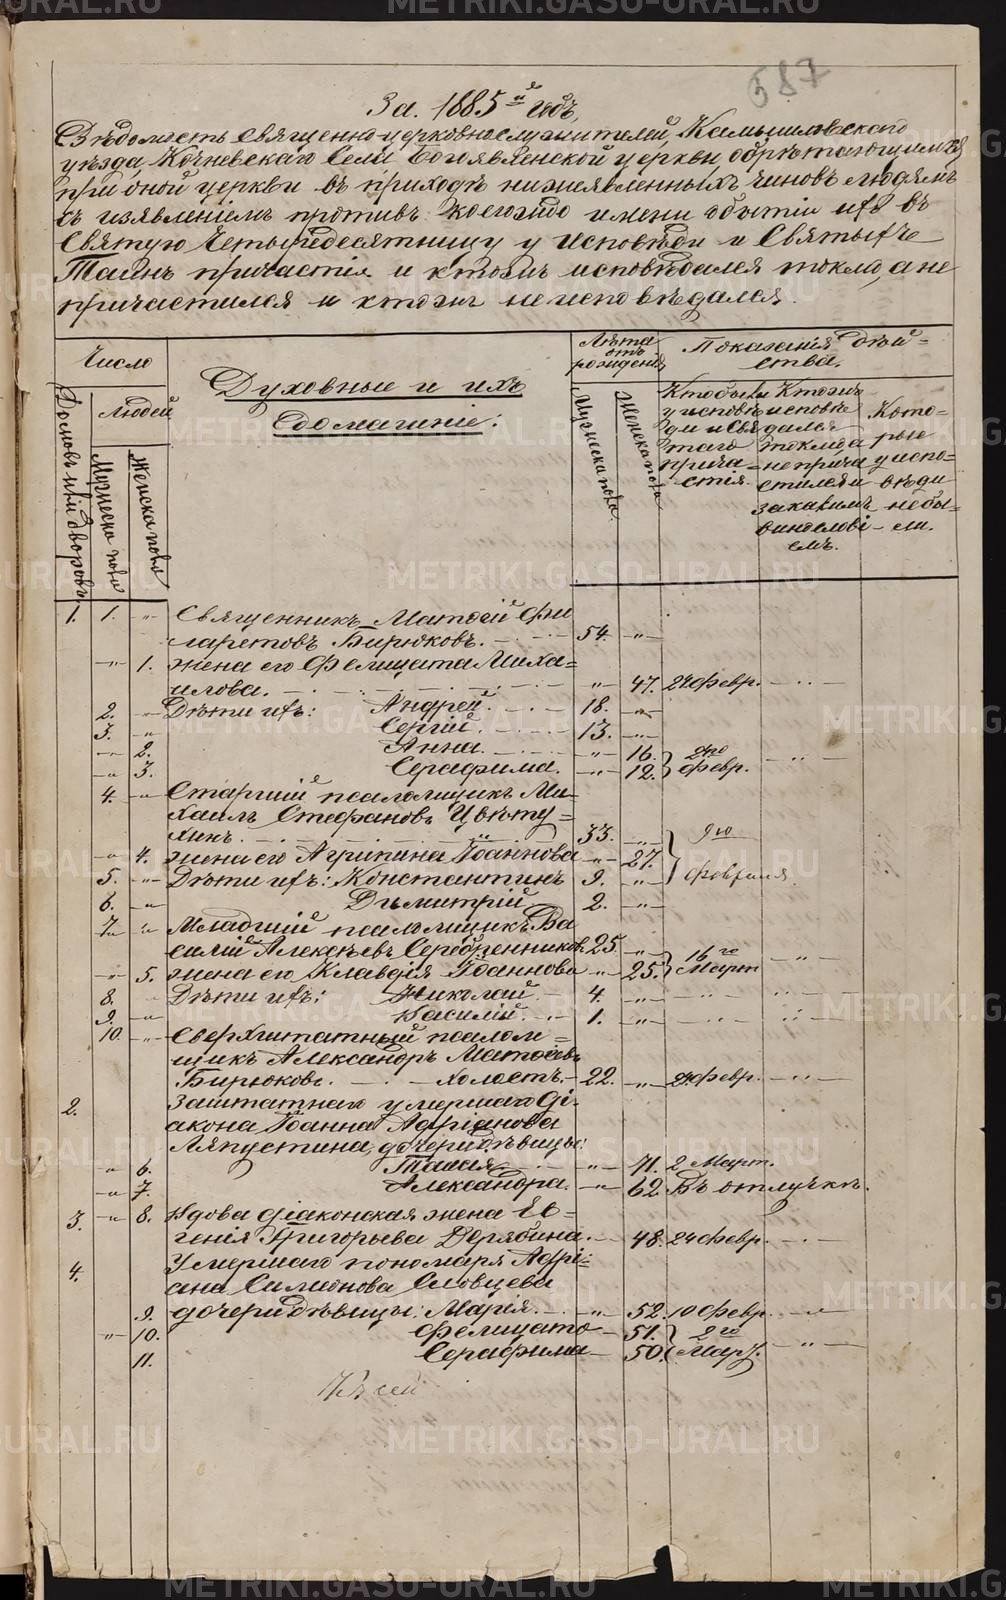 587
За. 1885й годъ,
Вѣдомость священно-церковнослужителей, Камышловскаго
уѣзда, Кочневскаго Села Богоявленской церкви, обрѣтающимся
при оной церкви въ приходѣ нижеявленныхъ чиновъ людямъ
съ изявленіемъ противъ коегождо имени о бытіи ихъ въ
Святую Четыредесятницу у Исповѣди и Святыхъ
Таинъ причастія и ктожъ исповѣдался токмо, а не
причастился и ктожъ неисповѣдался.
Число
Домовъ или дворовъ
Людей
Мужеска пола
Женска пола
Духовные и ихъ
Домашніе:
Лѣта
отъ
рожденія
Мужеска пола
Женска пола
Показанія дѣй=
ства.
Кто были
у исповѣ
ди и Свя
таго
прича=
стія.
Ктожъ
исповѣ
дался
токмо, а
не прича
стился и
за какимъ
винословi
емъ.
Кото-
рые
у испо-
вѣди
небы-
ли.
1. 1. -"- Священникъ Матѳей Фи
ларетовъ Бирюковъ. 54. -"-
-"- 1. жена его Фелицата Миха=
илова. -"- 47. 24 Февр. -"-
2. -"- Дѣти ихъ: Андрей. 18. -"-
3. -"- Сергій. 13. -"-
-"- 2. Анна. -"- 16. 24го
-"- 3. Серафима. -"- 12. Февр. -"-
4. -" Старшій псаломщикъ Ми-
хаилъ Стефановъ Цвѣту=
хинъ. 33. -"- 9го
-"- 4. жена его Агрипина Іоаннова -"- 27.
5. -"- Дѣти ихъ: Константинъ 9. -"- февраля.
6. -"- Димитрій 2. -"-
7. " Младшій псаломщикъ Ва
силій Алексѣевъ Серебренниковъ 25. -"- 16го
-"- 5. жена его Клавдія Іоаннова -"- 25. Март -"-
8. - Дѣти ихъ: Николай. 4. -"- -"- -"-
9. -"- Василій. 1. -"- -"- -"-
10. -"- Сверхштатный псалом-
щикъ Александръ Матѳѣевъ
Бирюковъ. Холостъ. 22. -"- 24 Февр. -"-
2. Заштатнаго умершаго Ді-
акона Іоанна Адріанова
Ляпустина, дочери дѣвицы:
-"- 6. Таисія -"- 71. 2 Март.
-"- 7. Александра. -"- 62. Въ отлучкѣ.
3. -"- 8. Вдова діаконская жена Ев-
генія Григорьева Дерябина. 48. 24 Февр.
4. Умершаго пономаря Адрі-
ана Симеонова Словцева
9. дочери дѣвицы: Марія. -"- 52. 10 Февр. -"-
-"- 10. Фелицата 51. 2го
11. Серафима 50. Март. -"-